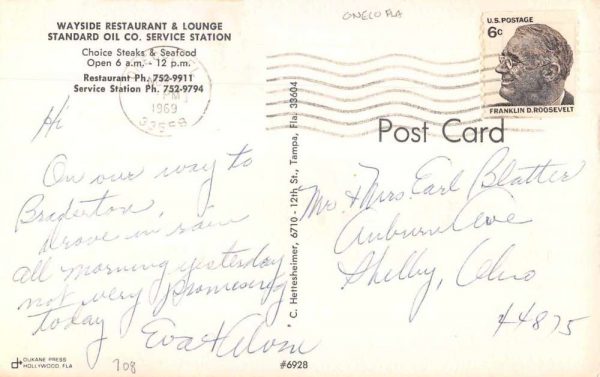 ONECO FLA
WAYSIDE RESTAURANT & LOUNGE
STANDARD OIL CO. SERVICE STATION
Choice Steaks & Seafood
Open 6 a.m. - 12 p.m.
Restaurant Ph. 752-9911
Service Station Ph. 752-9794
PM
1969
U.S. POSTAGE
6c
FRANKLIN D. ROOSEVELT
Post Card
Hi
On our way to
Bradenton,
drove in rain
all morning yesterday
not very promising
today
Eva & Alvin
C. Hettesheimer, 6710-12th St., Tampa, Fla. 33604
Mr. & Mrs. Earl Blatter
Auburn Ave
Shelby, Ohio
44875
DUKANE PRESS
HOLLYWOOD, FLA
708
#6928